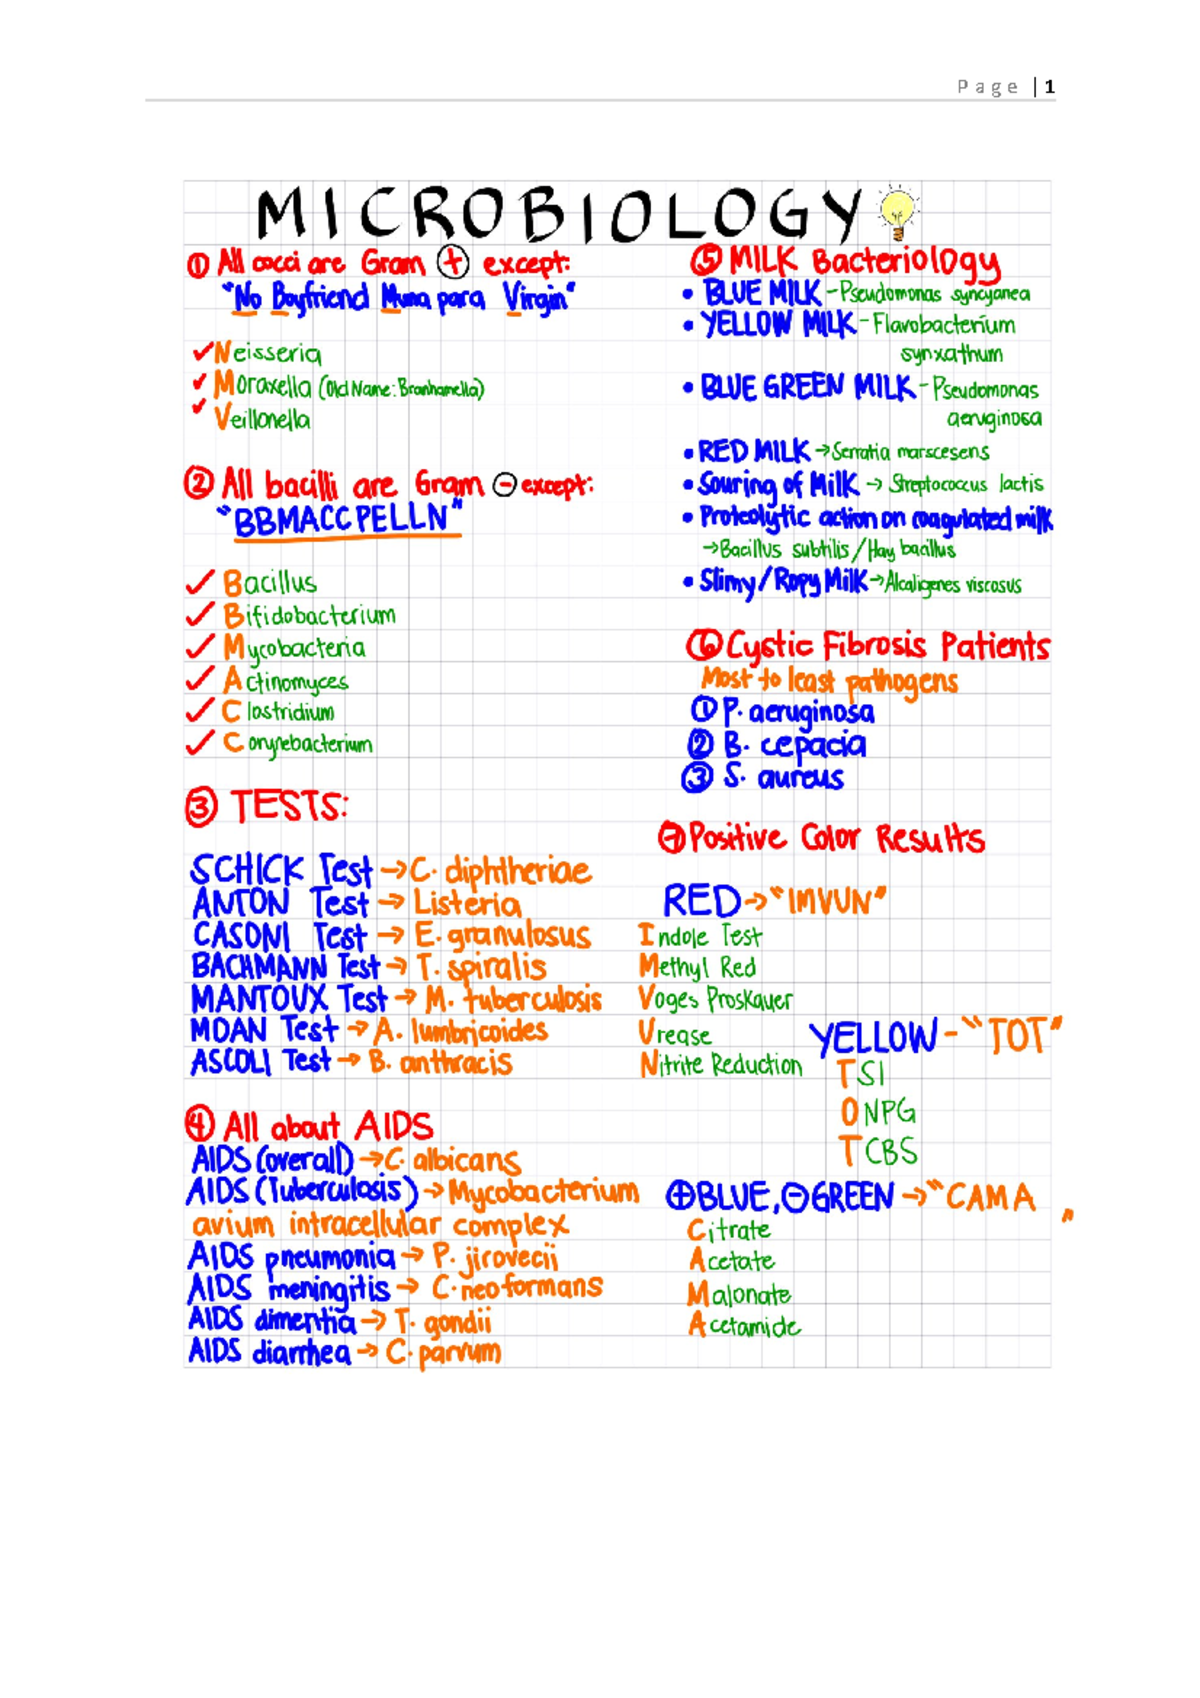 Page | 1
MICROBIOLOGY
① All cocci are Gram ⊕ except:
"No Boyfriend Muna para Virgin"
✓ Neisseria
✓ Moraxella (Old Name: Branhamella)
✓ Veillonella
② All bacilli are Gram ⊖ except:
"BBMACCPELLN"
✓ Bacillus
✓ Bifidobacterium
✓ Mycobacteria
✓ Actinomyces
✓ Clostridium
✓ Corynebacterium
③ TESTS:
SCHICK Test → C. diphtheriae
ANTON Test → Listeria
CASONI Test → E. granulosus
BACHMANN Test → T. spiralis
MANTOUX Test → M. tuberculosis
MOAN Test → A. lumbricoides
ASCOLI Test → B. anthracis
④ All about AIDS
AIDS (overall) → C. albicans
AIDS (Tuberculosis) → Mycobacterium
avium intracellular complex
AIDS pneumonia → P. jirovecii
AIDS meningitis → C. neoformans
AIDS dimentia → T. gondii
AIDS diarrhea → C. parvum
⑤ MILK Bacteriology
• BLUE MILK - Pseudomonas syncyanea
• YELLOW MILK - Flavobacterium
synxathum
• BLUE GREEN MILK - Pseudomonas
aeruginosa
• RED MILK → Serratia marscesens
• Souring of Milk → Streptococcus lactis
• Proteolytic action on coagulated milk
→ Bacillus subtilis / Hay bacillus
• Slimy / Ropy Milk → Alcaligenes viscosus
⑥ Cystic Fibrosis Patients
Most to least pathogens
① P. aeruginosa
② B. cepacia
③ S. aureus
⑦ Positive Color Results
RED → "IMVUN"
Indole Test
Methyl Red
Voges Proskauer
Urease
Nitrite Reduction
YELLOW - "TOT"
TSI
ONPG
TCBS
⊕ BLUE, ⊖ GREEN → "CAMA"
Citrate
Acetate
Malonate
Acetamide